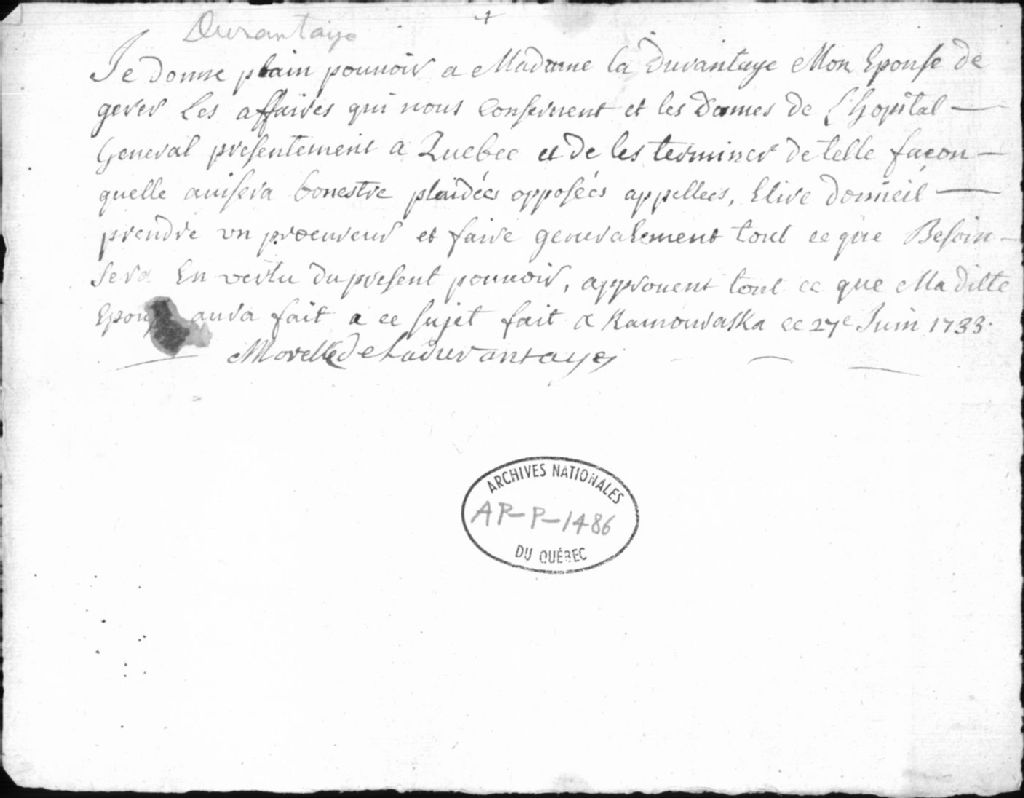 Durantaye
Je donne plain pouuoir a Madame la Durantaye Mon Epouse de
gerer Les affaires qui nous Consernent et les Dames de L'hopital
General presentement a Quebec et de les terminer de telle façon
quelle auisera bonestre plaidées opposées appellees, Elire domicil
prendre un procureur et faire generalement tout ce que Besoin
sera En vertu du present pouuoir, approuuent tout ce que Ma ditte
Epouse aura fait a ce sujet fait a Kamouraska ce 27e Juin 1733.
Morelle de Ladurantaye
ARCHIVES NATIONALES
AP-P-1486
DU QUÉBEC